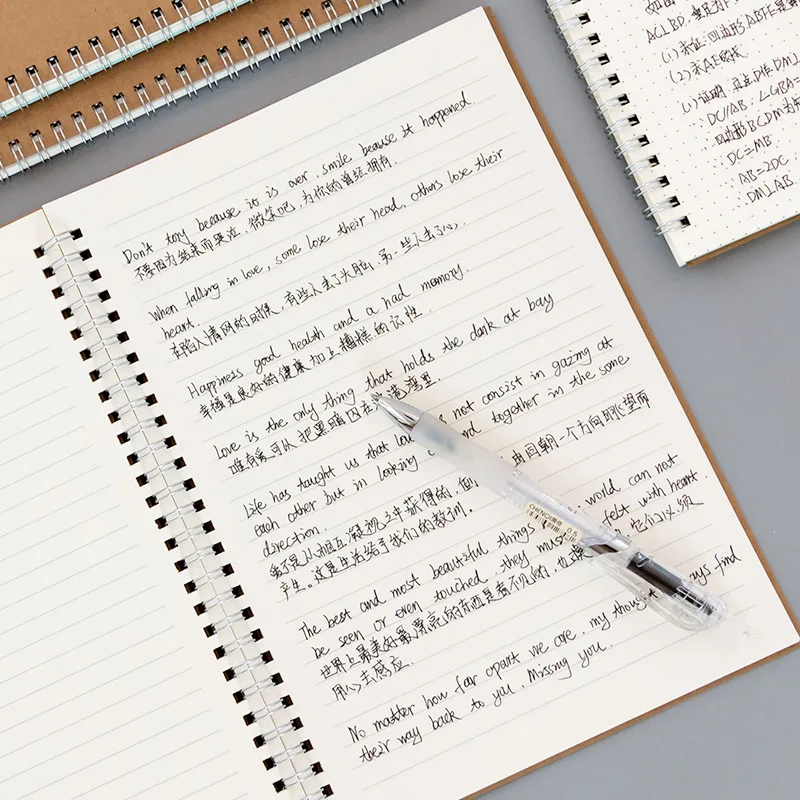 Don't because it is over, smile beause it happened.
不要因为结束而哭泣，微笑吧，为你的曾经拥有.
When falling in love, some lose their head, others lose their
heart.
在陷入情网的时候，有些人丢了头脑，另一些人丢了心.
Happiness good health and a had memory.
幸福是良好的健康加上糟糕的记性.
Love is the only thing that holds the dank at bay
唯有爱可以把黑暗囚在港湾里.
Life has taught us that not consist in gazing at
each other but in looking together in the same
direction.
爱不是从相互凝视之中获得的，但由同朝一个方向眺望而
产生。这是生活给予我们的教训.
The best and most beautiful things world can not
be seen or even touched, they must felt with heart.
世界上最美好最漂亮的东西是看不见的，也摸 它们必须
用心去感应.
No matter how far apart we are, my find
their way back to you, Missing you.
CHENQI 0.5
AC⊥BD,
(1)求证:四边形ABFE是
(2)求AE的长
(1)证明:
DC//AB.
四边形BCDM为
DC=MB
AB=2DC
DM⊥AB.